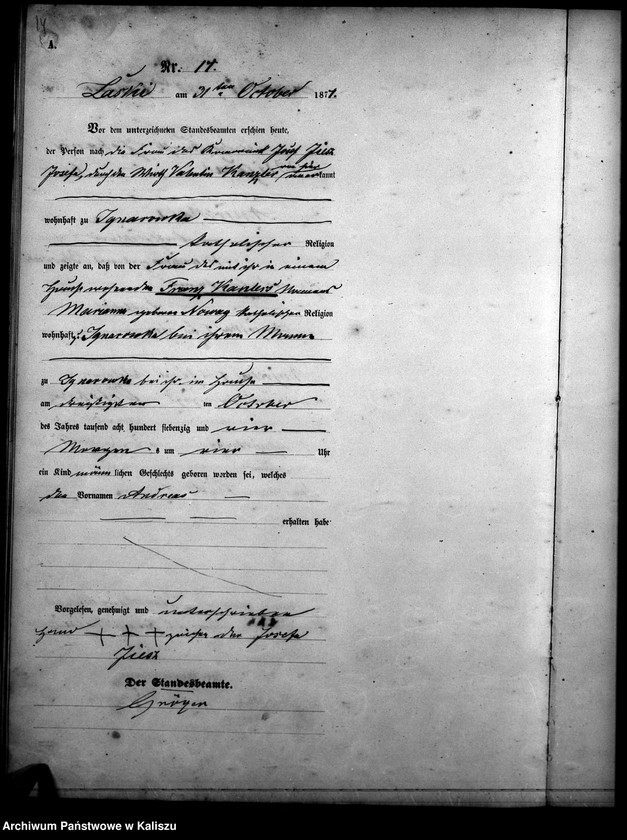 14
A.
Nr. 14.
Laski am 31ten October 1874.
Vor dem unterzeichneten Standesbeamten erschien heute,
der Person nach die Frau des Josef Jiesz
Josefa, durch den Wirth Valentin Kanzler kannt
wohnhaft zu Ignacowka
katholischer Religion
und zeigte an, daß von der Frau des mit ihr in einem
Hause wohnenden Franz Kanzlers Namens
Marianna geborene Nowag katholischer Religion
wohnhaft zu Ignacowka bei ihrem Manne
zu Ignacowka bei ihr im Hause
am dreißigsten ten October
des Jahres tausend acht hundert siebenzig und vier
Morgens um vier Uhr
ein Kind männlichen Geschlechts geboren worden sei, welches
den Vornamen Andreas
erhalten habe
Vorgelesen, genehmigt und unterschrieben
Hand +++ zeichen der Josefa
Jiesz
Der Standesbeamte.
Archiwum Państwowe w Kaliszu